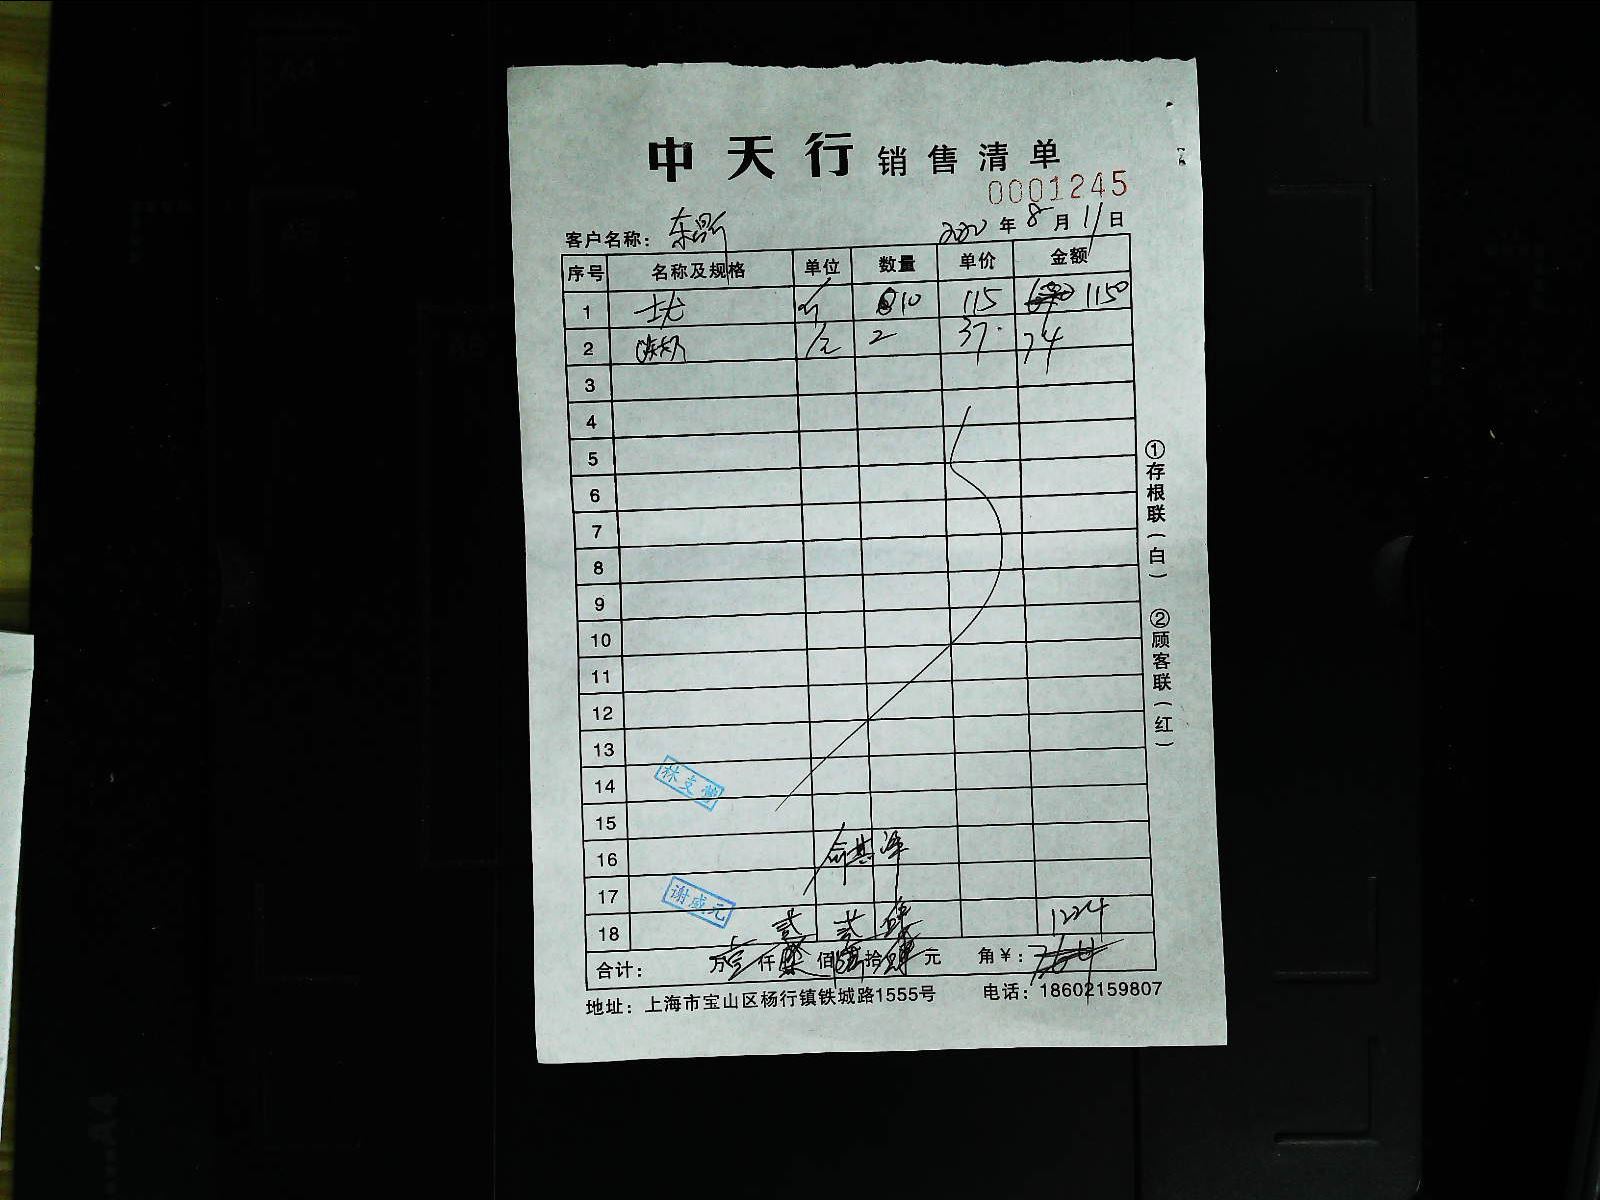 中天行 销售清单
0001245
客户名称： 2020 年 8 月 11 日
序号 名称及规格 单位 数量 单价 金额
1 10 115 1150
2 2 37. 74
3
4
5
6
7
8
9
10
11
12
13
14 林支
15
16
17 谢盛元
18 贰 贰 肆 1224
合计： 万 壹 仟 佰 拾 元 角 ¥： 764
地址：上海市宝山区杨行镇铁城路1555号 电话：18602159807
①存根联（白） ②顾客联（红）